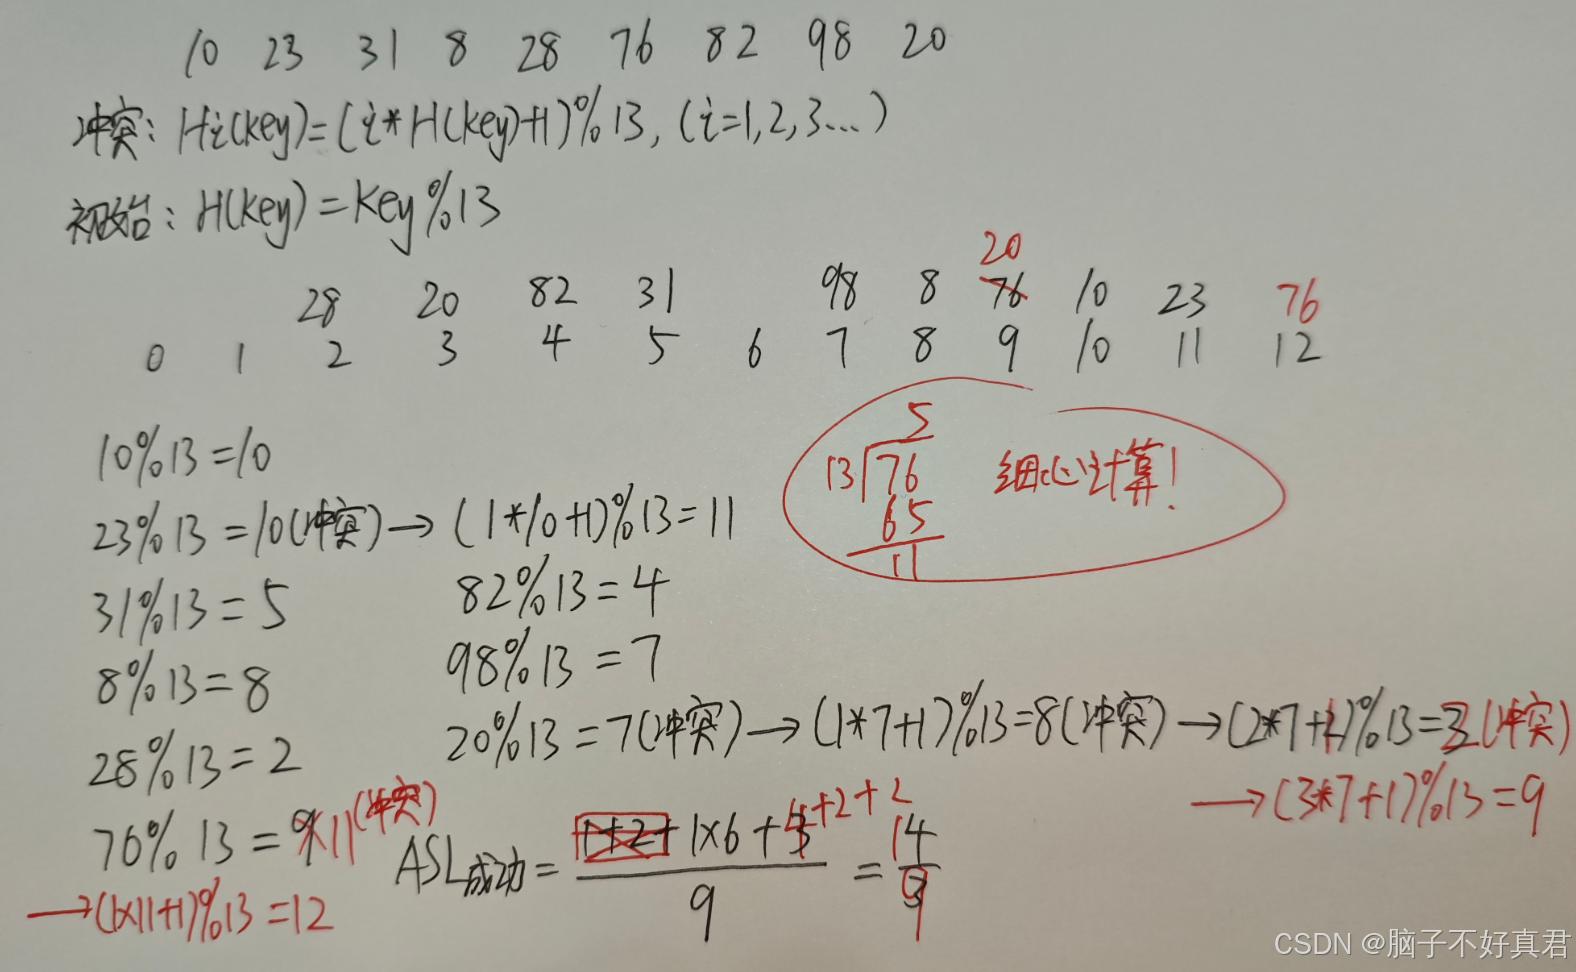 10 23 31 8 28 76 82 98 20
冲突: Hi(key)=(i*H(key)+1)%13, (i=1,2,3...)
初始: H(key)=key%13
20
28 20 82 31 98 8 76 10 23 76
0 1 2 3 4 5 6 7 8 9 10 11 12
5
13 76 细心计算!
65
11
10%13=10
23%13=10(冲突)→(1*10+1)%13=11
31%13=5 82%13=4
8%13=8 98%13=7
28%13=2 20%13=7(冲突)→(1*7+1)%13=8(冲突)→(2*7+1)%13=2(冲突)
→(3*7+1)%13=9
76%13=9 11(冲突)
→(1×11+1)%13=12
ASL成功= 1+2+1×6+4+2+2 = 14
9 9
CSDN @脑子不好真君